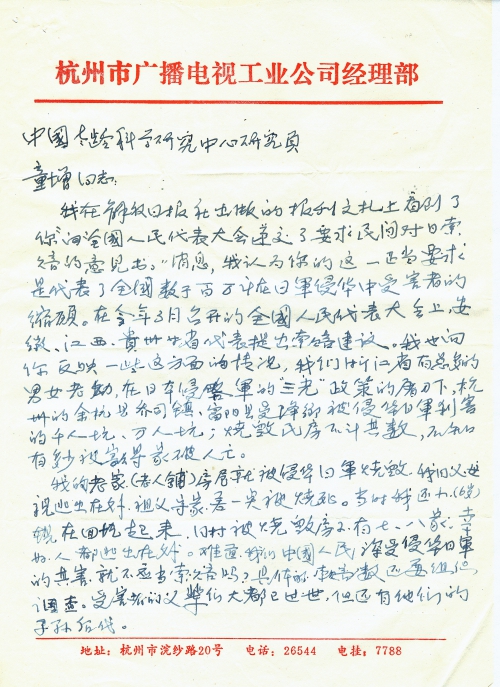 杭州市广播电视工业公司经理部
中國老龄科学研究中心研究員
童增同志:
我在解放日报社出版的报刊文扎上看到了
你"向全國人民代表大会递交了要求民间对日索
的意见书。"消息,我认为你的这一正当要求
是代表了全國数千百万计在日軍侵华中受害者的
缩顾。在今年3月召开的全國人民代表大会上,安
徽、江西、贵州省代表提出索赔建议。我也向
你反映一些这方面的情况,我们浙江省有
男女老幼,在日本侵略軍的"三光"政策的屠刀下,杭
州的余杭县乔司镇、富阳县 被侵华日軍利害
的千人坑、万人坑;烧毁民房不计其数,不知
有 被害得家破人亡。
我的老家(老人铺)房屋就被侵华日軍烧毁,我的父母
親逃出在外,祖父 被烧死。当时我还小(8岁)
起来,旧村被烧毁房子有七、八家,幸
好人都逃出在外。难道我们中國人民深受侵华日軍
的其害,就不应当索 吗?具体的 数还要组织
调查。受害者的父辈们大都已过世,但还有他们的
子孙后代。
地址:杭州市浣纱路20号 电话:26544 电挂:7788